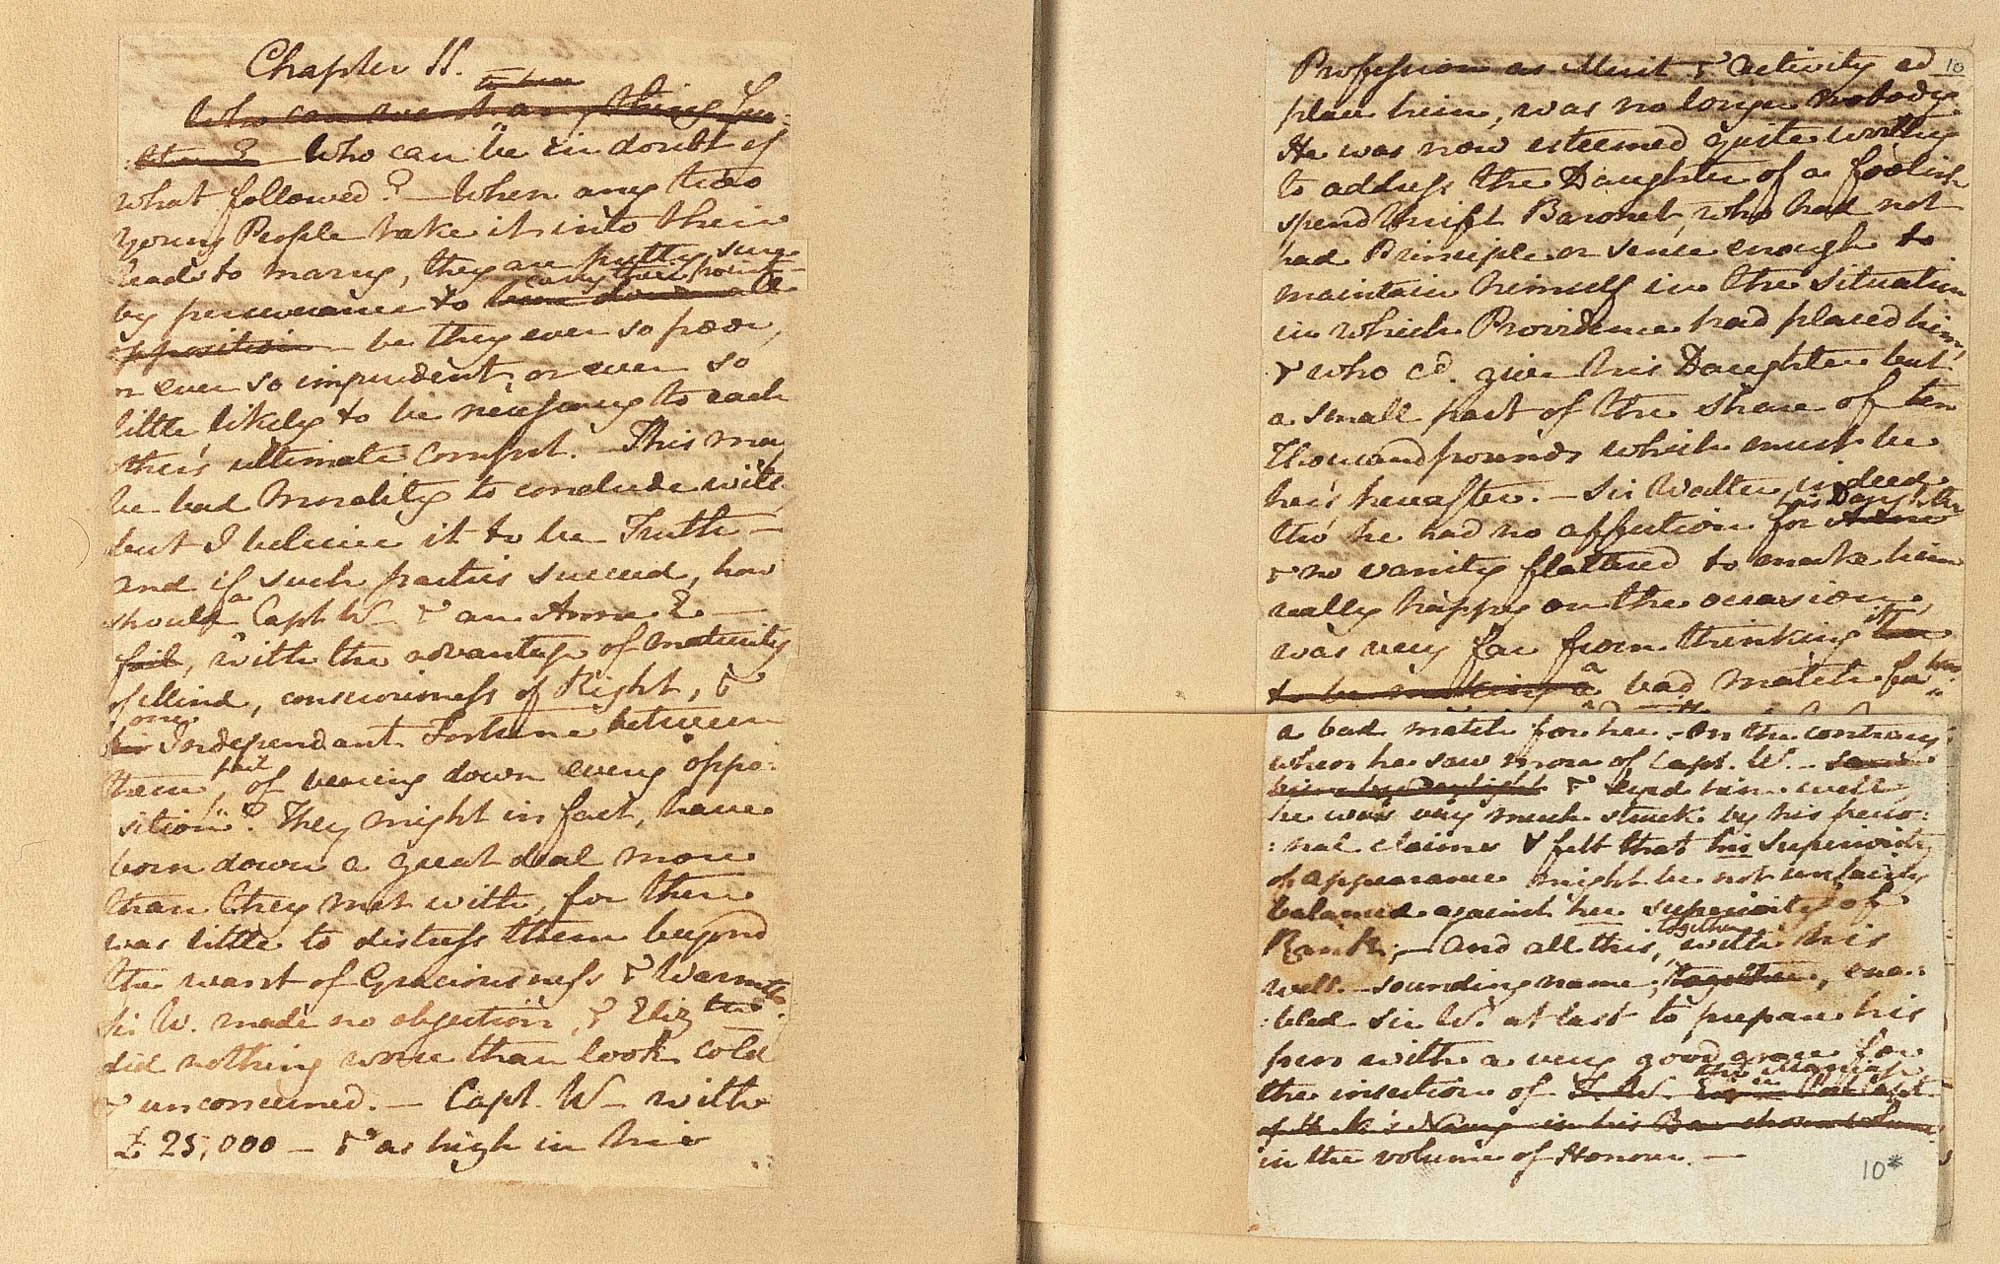 Chapter 11.
to here
Who can want any thing fur:
:ther? Who can be in doubt of
what followed? — When any two
young People take it into their
heads to marry, they are pretty sure
carry their point—
by perseverance to bear down all
opposition — be they ever so poor,
or ever so imprudent, or ever so
little likely to be necessary to each
other's ultimate comfort. This may
be bad Morality to conclude with
but I beleive it to be Truth —
and if such parties succeed, how
should a Capt W— & an Anne E—
fail, with the advantage of maturity
of Mind, consciousness of Right, &
one
an Independant Fortune between
fail
them, of bearing down every oppo:
sition? They might in fact, have
born down a great deal more
than they met with, for there
was little to distress them beyond
the want of Graciousness & Warmth.
Sir W. made no objection, & Elizth
did nothing worse than look cold
& unconcerned. — Capt. W— with
£ 25,000 — & as high in his
10
Profession as Merit & Activity cd
place him, was no longer nobody.
He was now esteemed quite worthy
to address the Daughter of a foolish
spendthrift Baronet, who had not
had Principle or sence enough to
maintain himself in the situation
in which Providence had placed him,
& who cd. give his Daughter but
a small part of the share of ten
Thousand pounds which must be
her's hereafter. — Sir Walter indeed
his Daughter
tho' he had no affection for Anne
& no vanity flattered to make him
really happy on the occasion,
it
was very far from thinking
to be making a a bad match for her.
a bad match for her. On the contrary
when he saw more of Capt. W. —
him by Daylight & eyed him well
he was very much struck by his perso:
:nal claims & felt that his superiority
of appearance might be not unfairly
balanced against her superiority of
together
Rank; — and all this, with his
well-sounding name, together, ena:
:bled Sir W. at last to prepare his
pen with a very good grace for
the Marriage
the insertion of
in the volume of Honour. —
10*